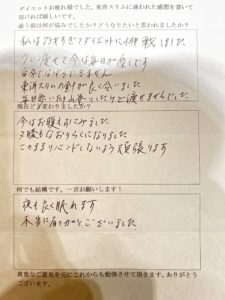 ダイエットお疲れ様でした。東洋スリムに通われた感想を書いて
頂ければ嬉しいです。
通う前は何が悩みでしたか？どうなりたいと思われましたか？
私は乃木すぎてダイエットに挑戦しました
少し痩せて今は毎日が楽しです
東洋スリムの針が良く合いました
現在どう変わりましたか？
今はお腹も引こみました
夕腹もなおりらくになりました
このままリバンドしないよう頑張ります
何でも結構です。一言お願いします！
夜も良く眠れます
本当に有りがとうございました
貴重なご意見を元にこれからも勉強させて頂きます。ありがとう
ございます。